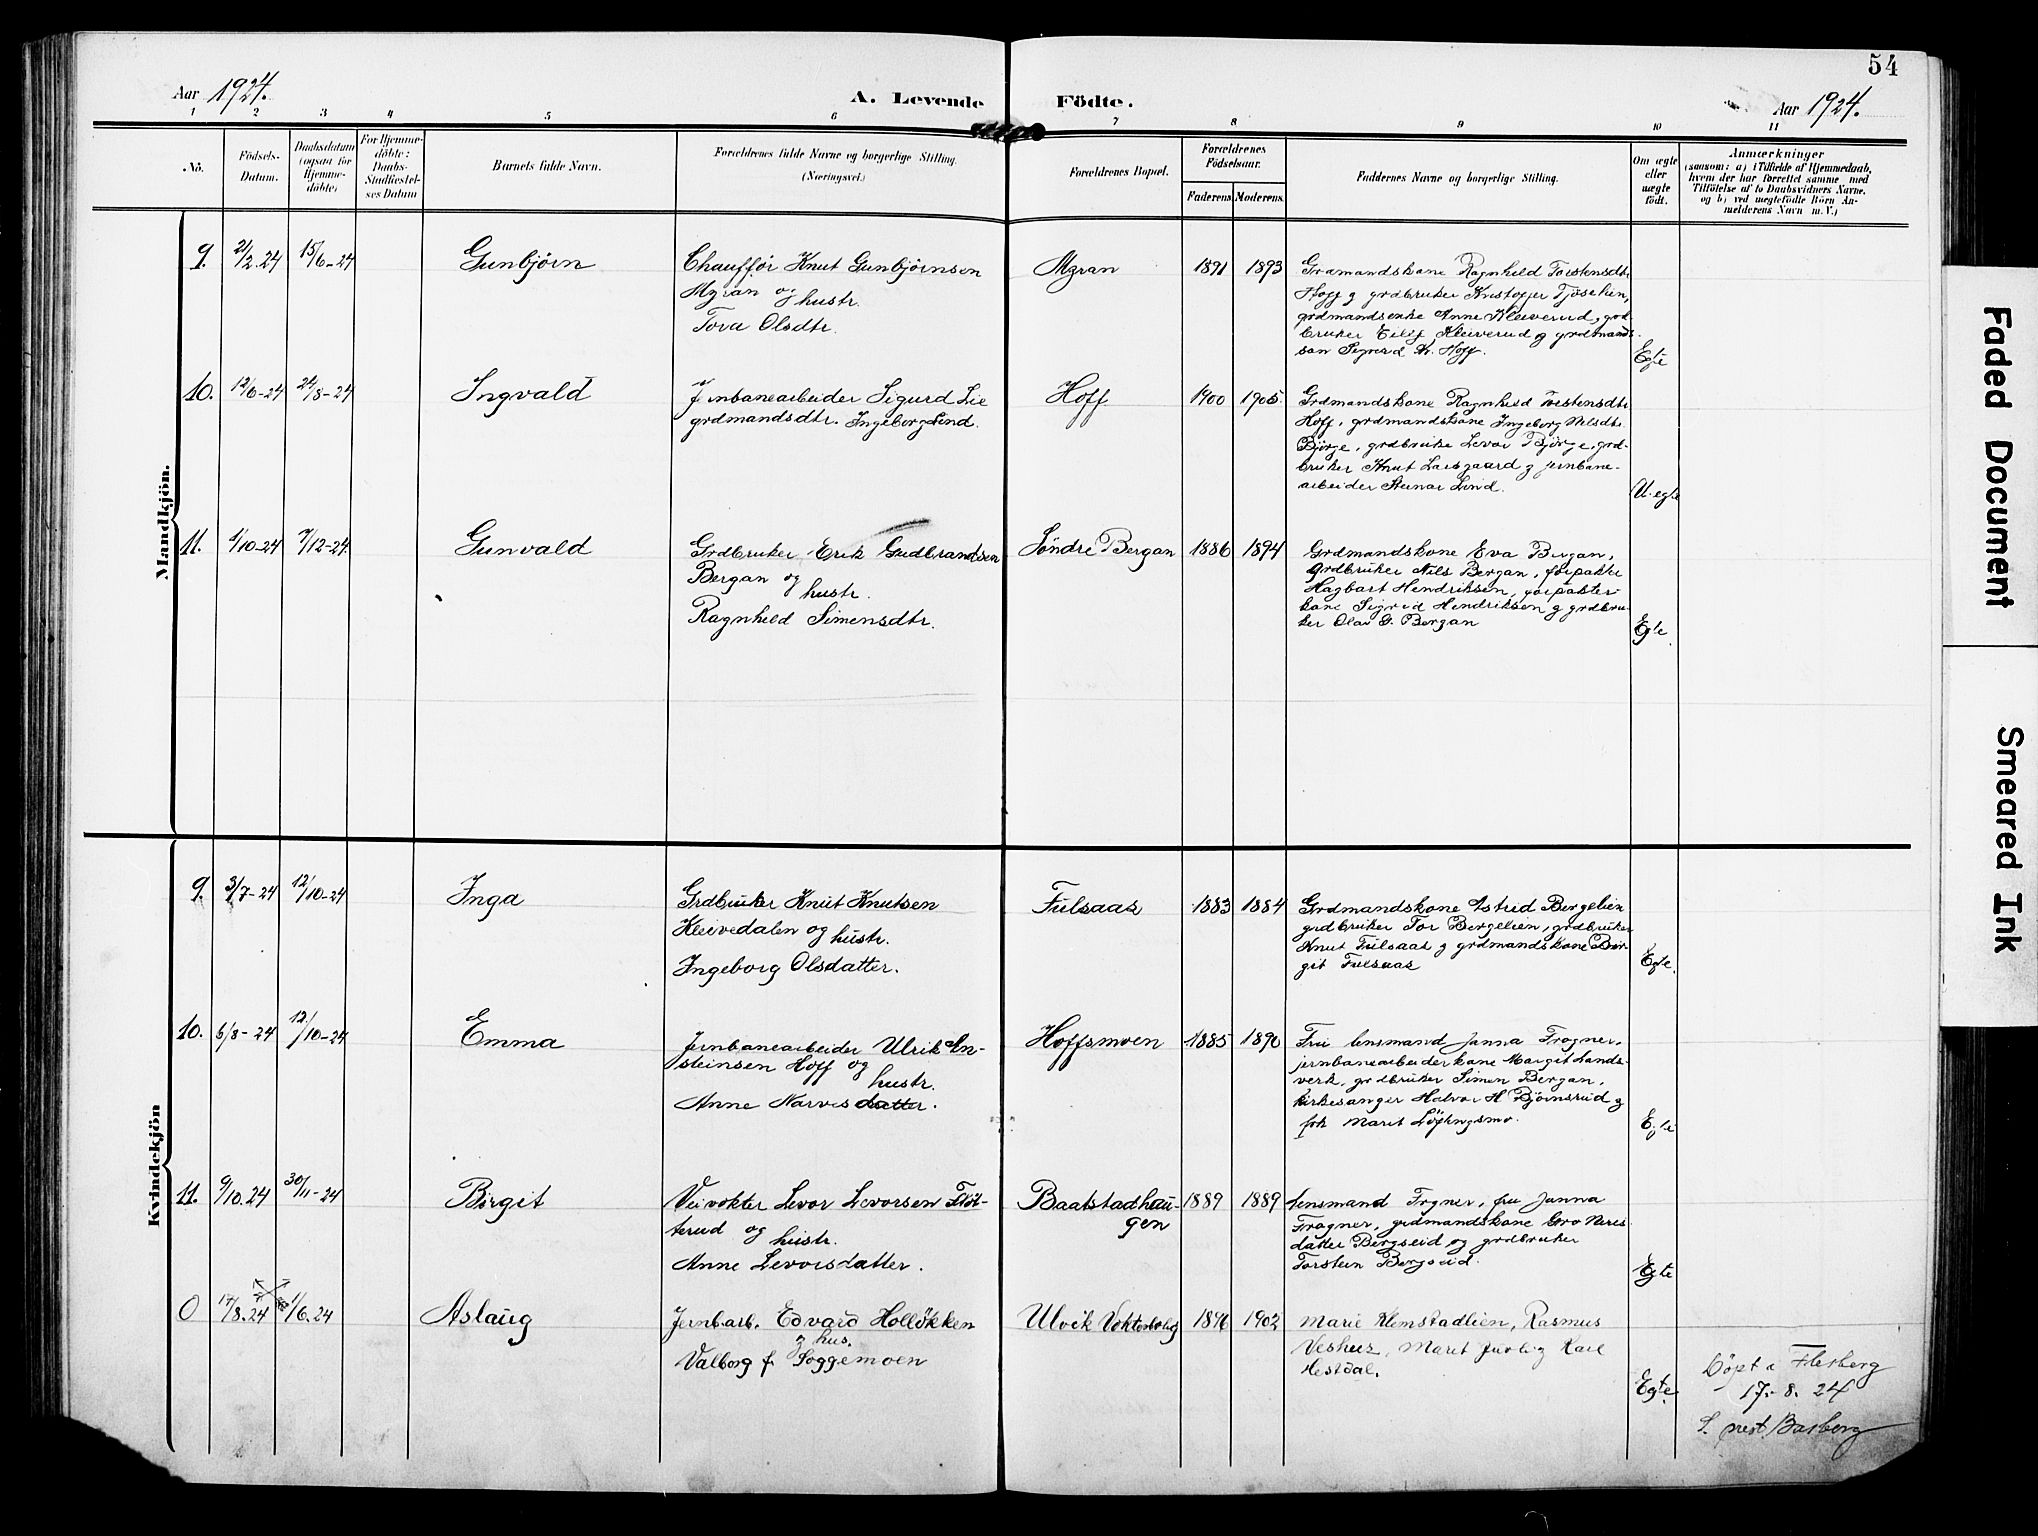 54
Aar 1924.
A. Levende Födte.
Aar 1924.
1 2 3 4 5 6 7 8 9 10 11
No.
Födsels-
Datum.
Daabsdatum
(ogsaa for
Hjemme-
döbte)
For Hjemme-
döbte:
Daabs-
Stadfæstel-
ses Datum
Barnets fulde Navn.
Forældrenes fulde Navne og borgerlige Stilling.
(Næringsvei.)
Forældrenes Bopæl.
Forældrenes
Födselsaar.
Faderens
Moderens.
Faddernes Navne og borgerlige Stilling.
Om ægte
eller
uægte
födt.
Anmærkninger
(saasom: a) i Tilfælde af Hjemmedaab,
hvem der har forrettet samme med
Tilföielse af to Daabsvidners Navne,
og b) ved uægtefödte Börn An-
melderens Navn m. V.)
Mandkjön.
9. 21/2.24 15/6-24 Gunbjørn
Chauffør Knut Gunbjørnsen
Myran og hustr.
Tova Olsdtr.
Myran 1891 1893
Grdmandskone Ragnhild Torstensdtr
Hoff g grdbruker Kristoffer Tjøselien,
grdmandsenke Anne Kleiverud, grd
bruker Eilif Kleiverud g grdmands
søn Sigurd Kr. Hoff.
Egte
10. 12/6-24 24/8-24 Ingvald
Jernbanearbeider Sigurd Lie
grdmandsdtr. Ingeborg Lind.
Hoff 1900 1905.
Grdmandskone Ragnhild Torstensdtr
Hoff, grdmandskone Ingeborg Nilsdtr.
Bjørge, grdbruke Levor Bjørge, grd-
bruker Knut Larsgaard g jernbane-
arbeider Steinar Lind.
U. egte
11. 1/10-24 7/12-24 Gunvald
Grdbruker Erik Gudbrandsen
Bergan og hustr.
Ragnhild Simensdtr.
Søndre Bergan 1886 1894
Grdmandskone Eva Bergan,
grdbruker Nils Bergan, forpakter
Hagbart Hendriksen, forpakter-
kone Sigrid Hendriksen g grdbru-
ker Olav G. Bergan
Egte.
Kvindekjön
9. 3/7-24 12/10-24 Inga
Grdbruker Knut Knutsen
Kleivedalen og hustr.
Ingeborg Olsdatter.
Fulsaas 1883 1884
Grdmandskone Astrid Bergelien
grdbruker Tor Bergelien, grdbruker
Knut Fulsaas g grdmandskone Bir-
git Fulsaas
Egte.
10. 6/8-24 12/10-24 Emma
Jernbanearbeider Ulrik En-
steinsen Hoff og hustr.
Anne Narvesdatter.
Hoffsmoen 1885 1890
Fru lensmand Janna Frogner,
jernbanearbeiderkone Margit Lands-
verk, grdbruker Simen Bergan,
kirkesanger Halvor H Bjørnsrud g
frk Marit Løfthngsmo.
Egte
11. 9/10.24 30/11-24 Birgit
Veivokter Levor Levorsen Fløt-
terud og hustr.
Anne Levorsdatter.
Baatstadhau-
gen 1889 1889
Lensmand Frogner, fru Janna
Frogner, grdmandskone Gro Neris
datter Bergseid og grdbruker
Torstein Bergseid.
Egte
0 17/8.24 1/6.24 Aslaug
Jernbarb. Edvard Holløkken
g hus.
Valborg f. Soggemoen
Ulvik Vokterbolig 1896 1902
Marie Klemstadlien, Rasmus
Veshus, Marit Juvlig Karl
Hestdal.
Egte.
Døpt i Flesberg
17.-8. 24
S. prest. Barberg
Faded Document
Smeared Ink